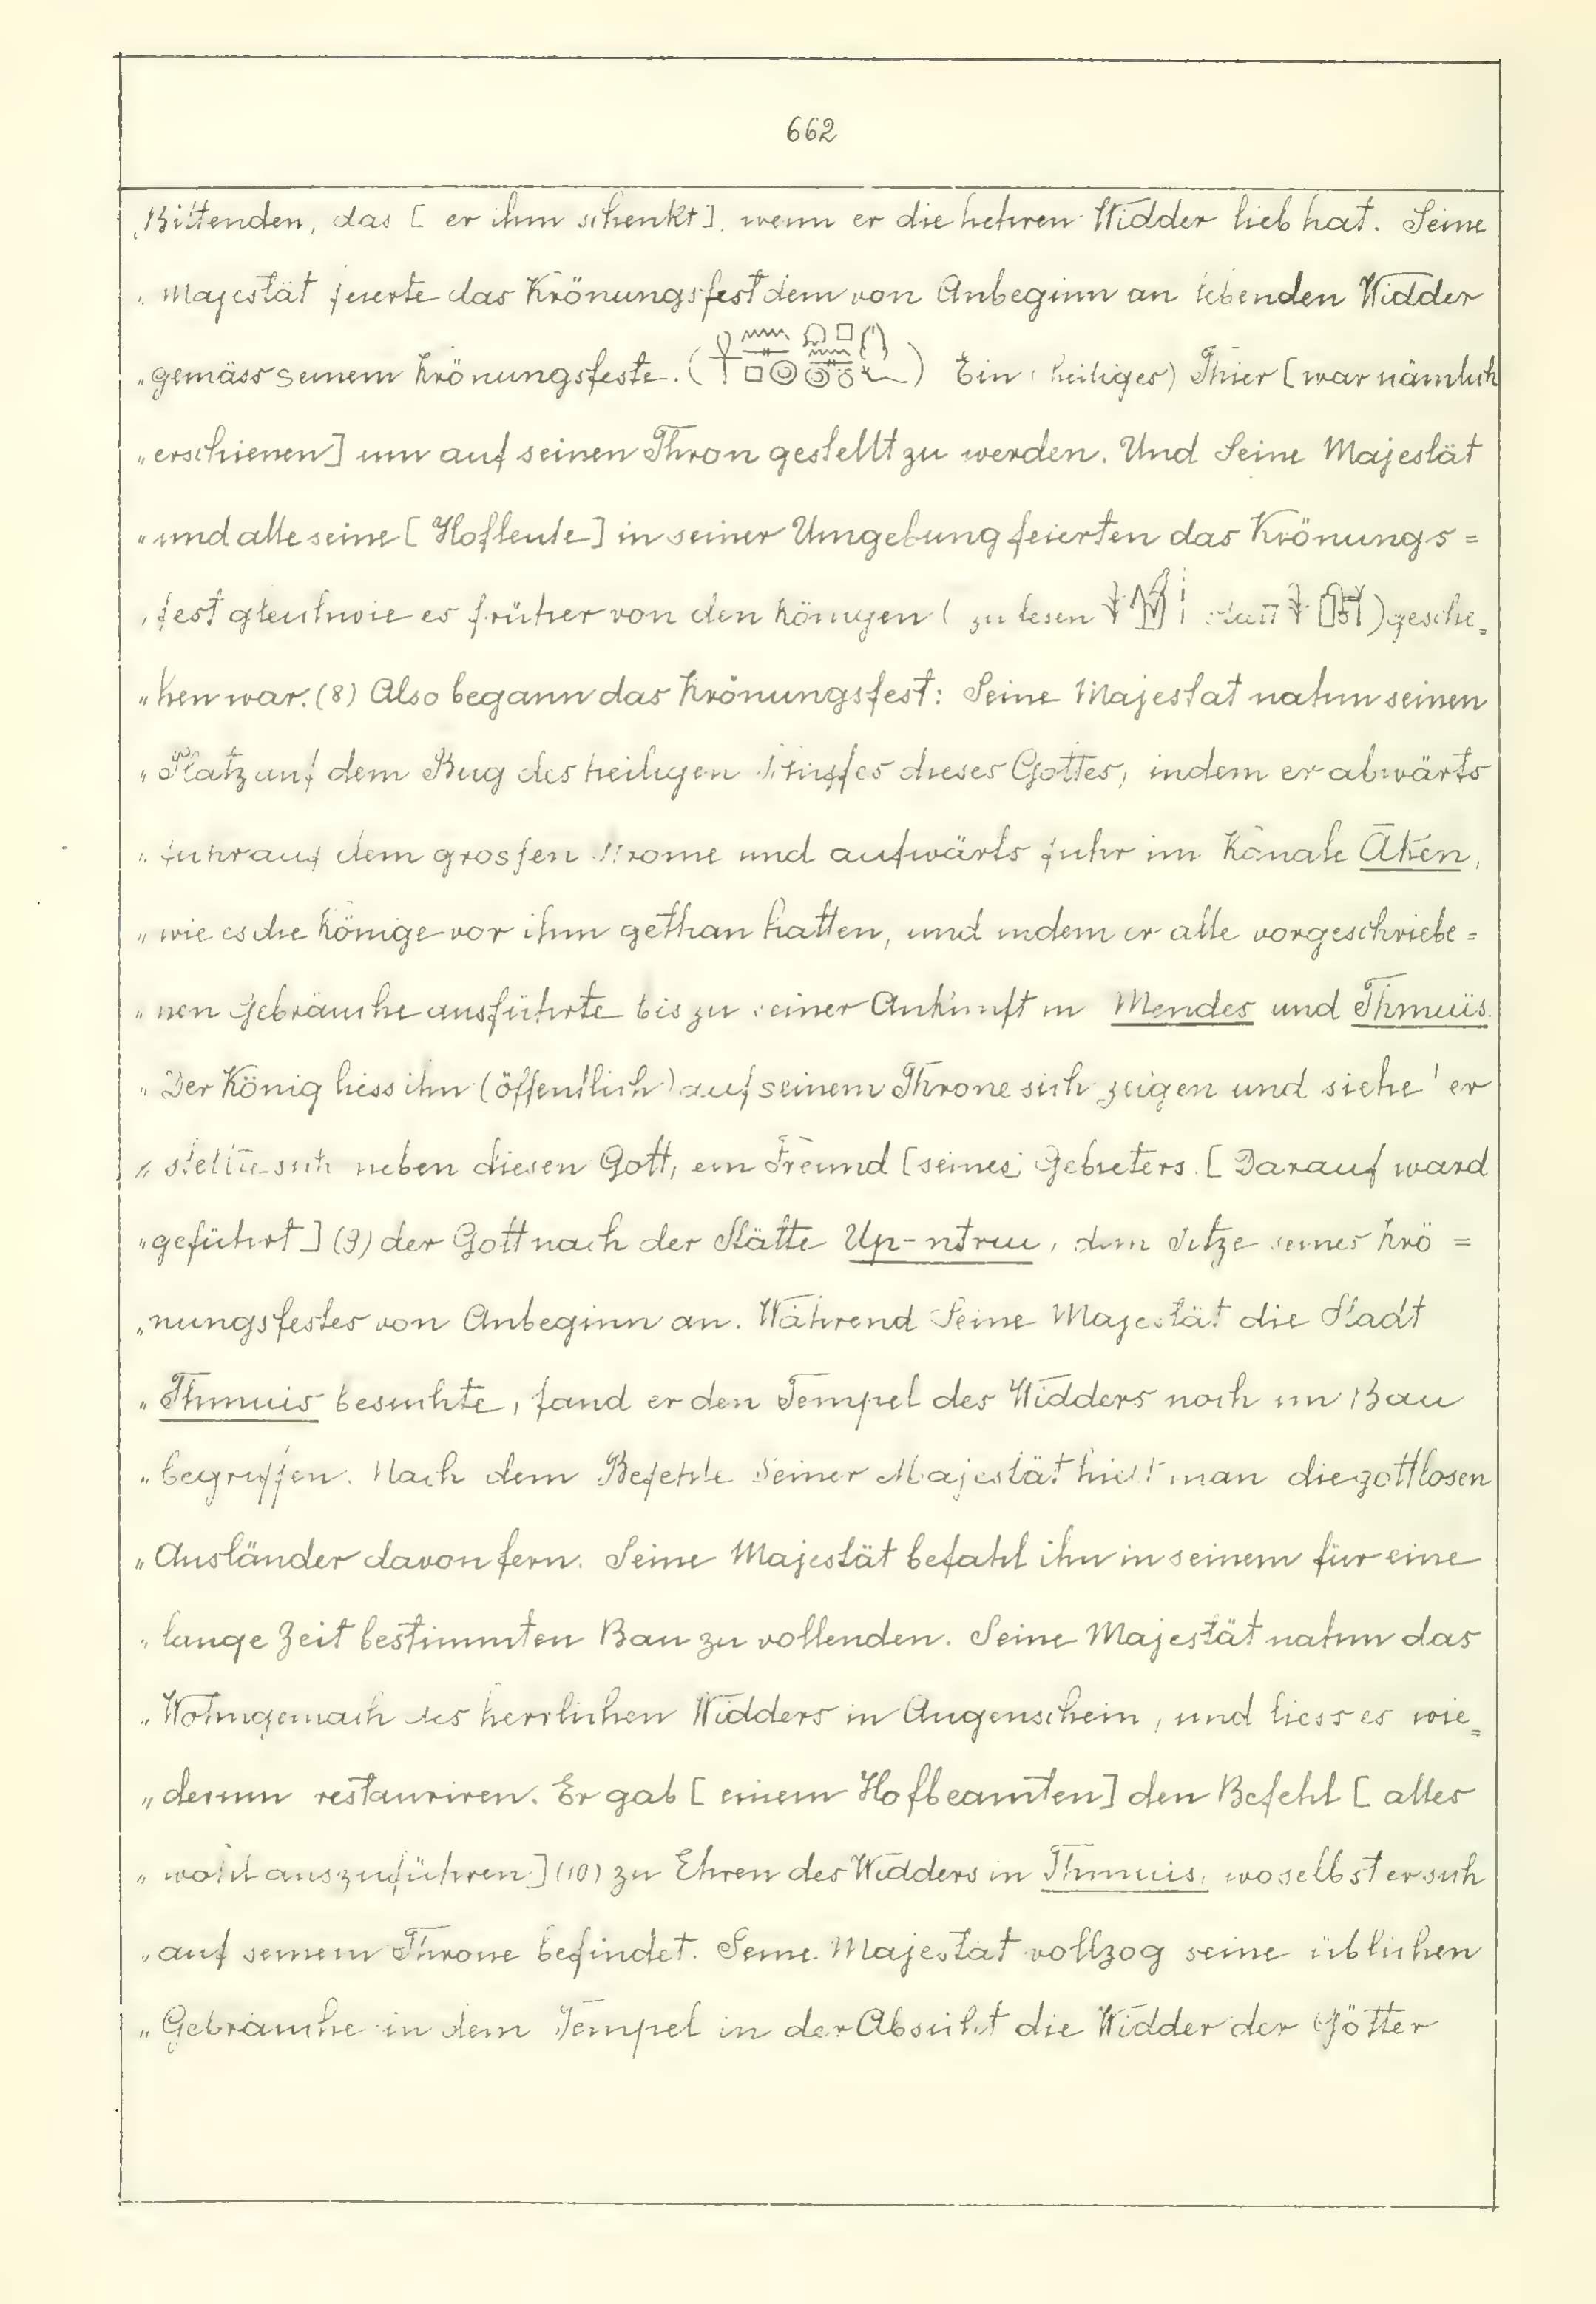 662
„Bittenden, das [ er ihm schenkt], wenn er die hehren Widder lieb hat. Seine
„Majestät feierte das Krönungsfest dem von Anbeginn an lebenden Widder
„gemäss seinem Krönungsfeste. ( ) Ein (heiliges) Thier [war nämlich
„erschienen] um auf seinen Thron gestellt zu werden. Und Seine Majestät
„und alle seine [Hofleute] in seiner Umgebung feierten das Krönungs=
„fest gleichwie es früher von den Königen ( zu lesen statt )gesche=
„hen war. (8) Also begann das Krönungsfest: Seine Majestät nahm seinen
„Platz auf dem Bug des heiligen Schiffes dieses Gottes, indem er abwärts
„fuhr auf dem grossen Strome und aufwärts fuhr im Kanale Aken,
„wie es die Könige vor ihm gethan hatten, und indem er alle vorgeschriebe=
„nen Gebräuche ausführte bis zu seiner Ankunft in Mendes und Thmuïs.
„Der König liess ihn (öffentlich) auf seinem Throne sich zeigen und siehe! er
„stellte sich neben diesen Gott, ein Freund [seines] Gebieters. [Darauf ward
„geführt] (9) der Gott nach der Stätte Up-ntruu, dem Sitze seines Krö=
„nungsfestes von Anbeginn an. Während Seine Majestät die Stadt
„Thmuis besuchte, fand er den Tempel des Widders noch im Bau
„begriffen. Nach dem Befehle Seiner Majestät hielt man die gottlosen
„Ausländer davon fern. Seine Majestät befahl ihn in seinem für eine
„lange Zeit bestimmten Bau zu vollenden. Seine Majestät nahm das
„Wohngemach des herrlichen Widders in Augenschein, und liess es wie=
„derum restauriren. Er gab [einem Hofbeamten] den Befehl [alles
„wohl auszuführen] (10) zu Ehren des Widders in Thmuis, woselbst er sich
„auf seinem Throne befindet. Seine Majestät vollzog seine üblichen
„Gebräuche in dem Tempel in der Absicht die Widder der Götter